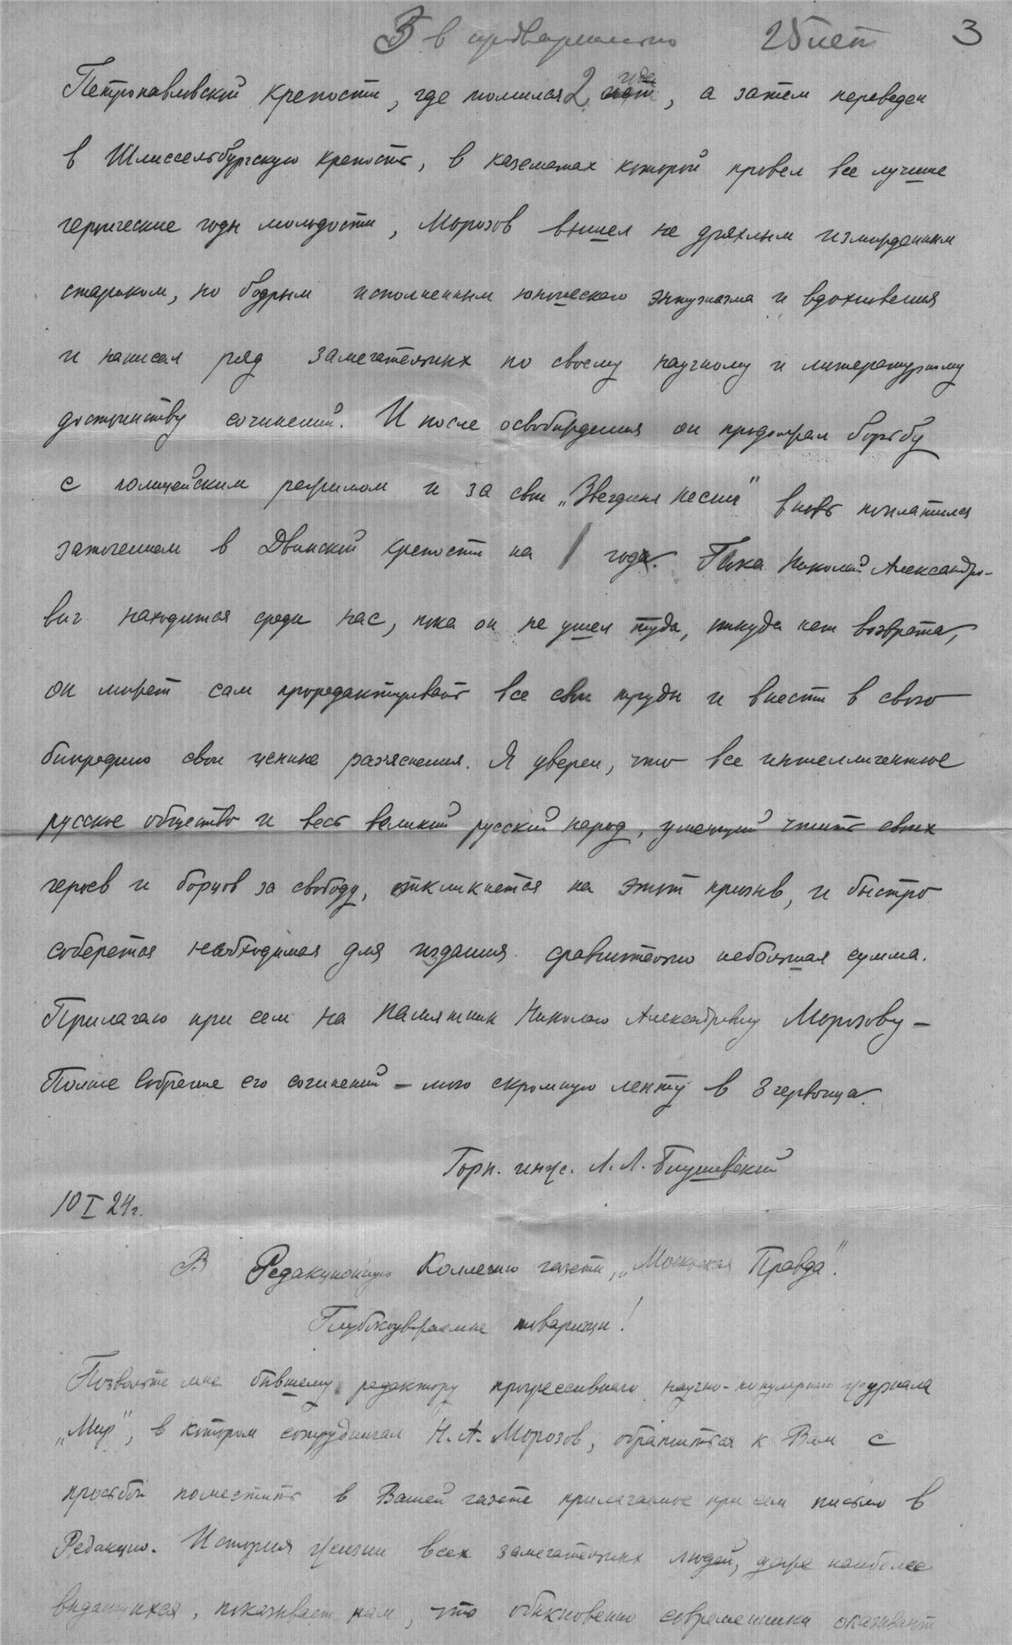 3 в предварительно 25 лет 3
Петропавловской крепости, где томился 2 года лет, а затем переведен
в Шлиссельбургскую крепость, в казематах которой провел все лучшие
героические годы молодости, Морозов вышел не дряхлым изможденным
стариком, но бодрым исполненным юношеского энтузиазма и вдохновения
и написал ряд замечательных по своему научному и литературному
достоинству сочинений. И после освобождения он продолжал борьбу
с полицейским режимом и за свои „Звездные песни" вновь поплатился
заточением в Двинской крепости на 1 год. Пока Николай Александро-
вич находится среди нас, пока он не ушел туда, откуда нет возврата,
он может сам проредактировать все свои труды и внести в свою
биографию свои ценные разъяснения. Я уверен, что все интеллигентное
русское общество и весь великий русский народ, умеющий чтить своих
героев и борцов за свободу, откликнется на этот призыв, и быстро
соберется необходимая для издания сравнительно небольшая сумма.
Прилагаю при сем на памятник Николаю Александровичу Морозову —
Полное собрание его сочинений — мою скромную лепту в 3 червонца.
Горн. инж. Л. Л.
10 I 24 г.
В Редакционную Коллегию газеты „ Правда".
Глубокоуважаемые товарищи!
Позвольте мне бывшему редактору прогрессивного научно-популярного журнала
„Мир", в котором сотрудничал Н. А. Морозов, обратиться к Вам с
просьбой поместить в Вашей газете прилагаемое при сем письмо в
Редакцию. История жизни всех замечательных людей, даже наиболее
выдающихся, показывает нам, что обыкновенно современники оказывают